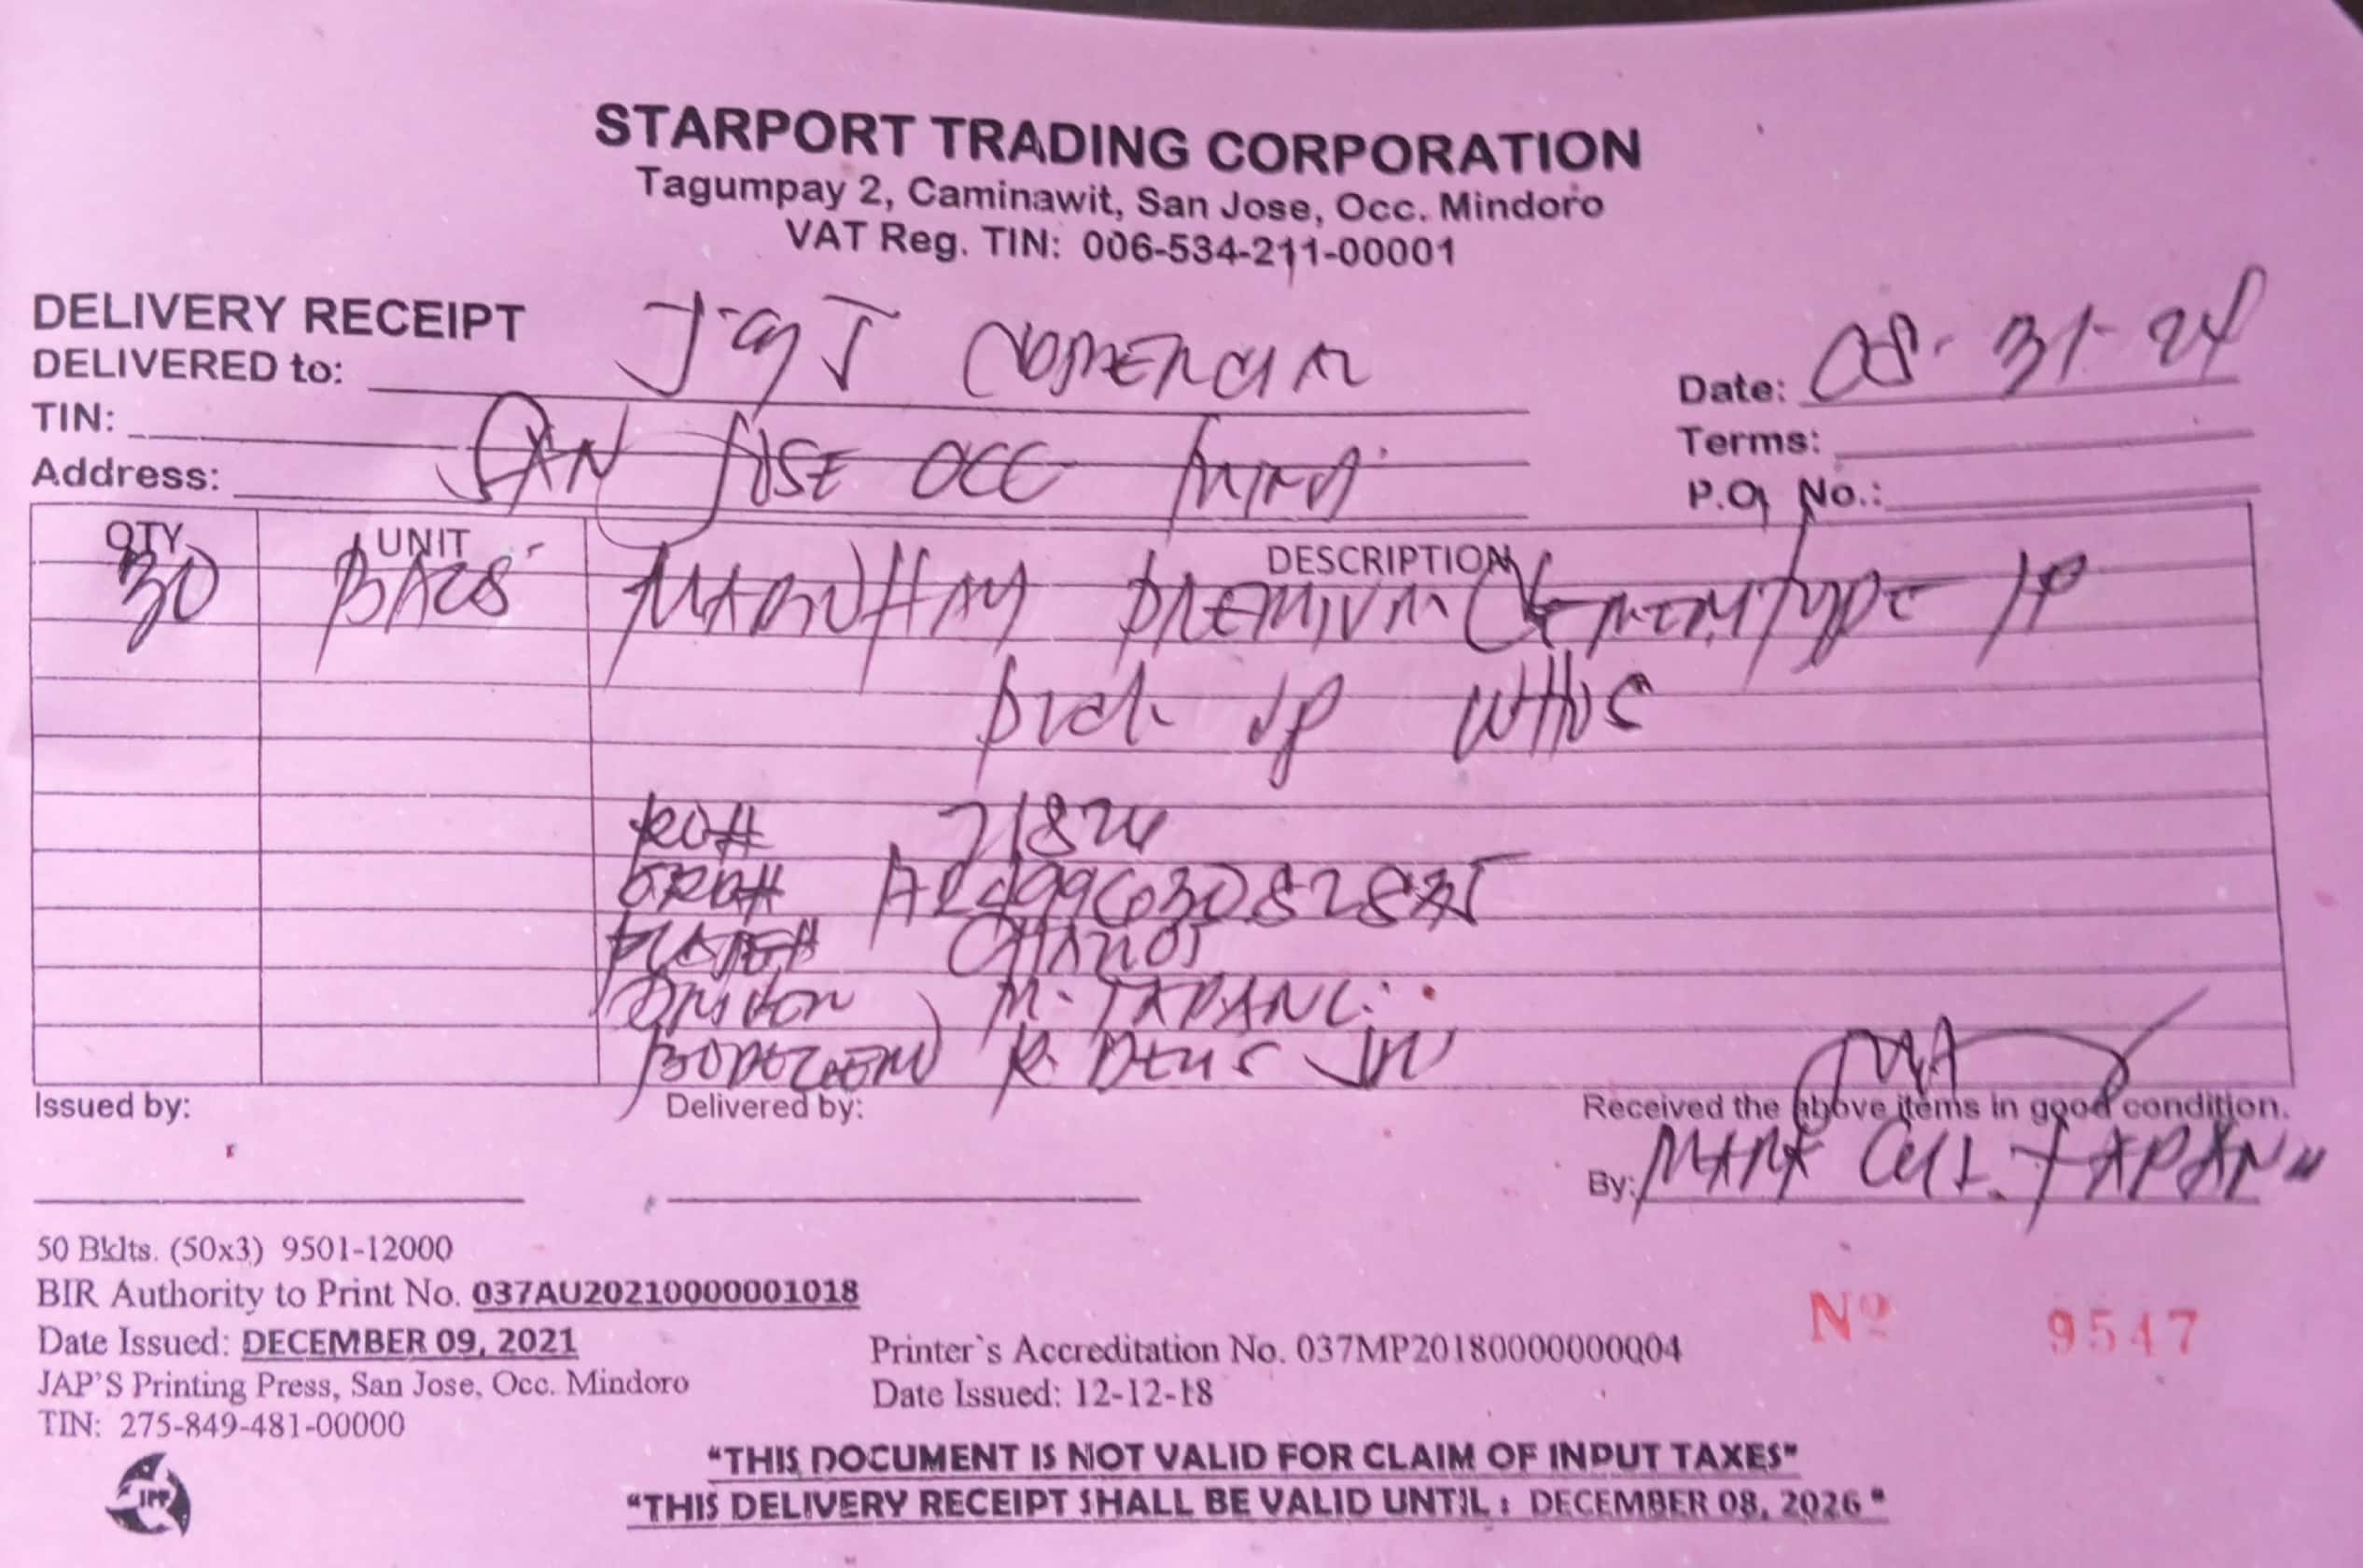 STARPORT TRADING CORPORATION
Tagumpay 2, Caminawit, San Jose, Occ. Mindoro
VAT Reg. TIN: 006-534-211-00001
DELIVERY RECEIPT
DELIVERED to: J J COMERCIAL
Date: 08-31-24
TIN:
Terms:
Address: SAN JOSE OCC
P.O. No.:
QTY UNIT DESCRIPTION
30 BAGS PREMIUM Cement Type 1P
pick up WHSE
RO# 71824
PLATE#
M. TAPANG
R. JR
Issued by:
Delivered by:
Received the above items in good condition.
By: MARK TAPAN
50 Bklts. (50x3) 9501-12000
BIR Authority to Print No. 037AU20210000001018
Date Issued: DECEMBER 09, 2021
JAP'S Printing Press, San Jose, Occ. Mindoro
TIN: 275-849-481-00000
Printer`s Accreditation No. 037MP20180000000004
Date Issued: 12-12-18
Nº 9547
JPP
"THIS DOCUMENT IS NOT VALID FOR CLAIM OF INPUT TAXES"
"THIS DELIVERY RECEIPT SHALL BE VALID UNTIL : DECEMBER 08, 2026 "